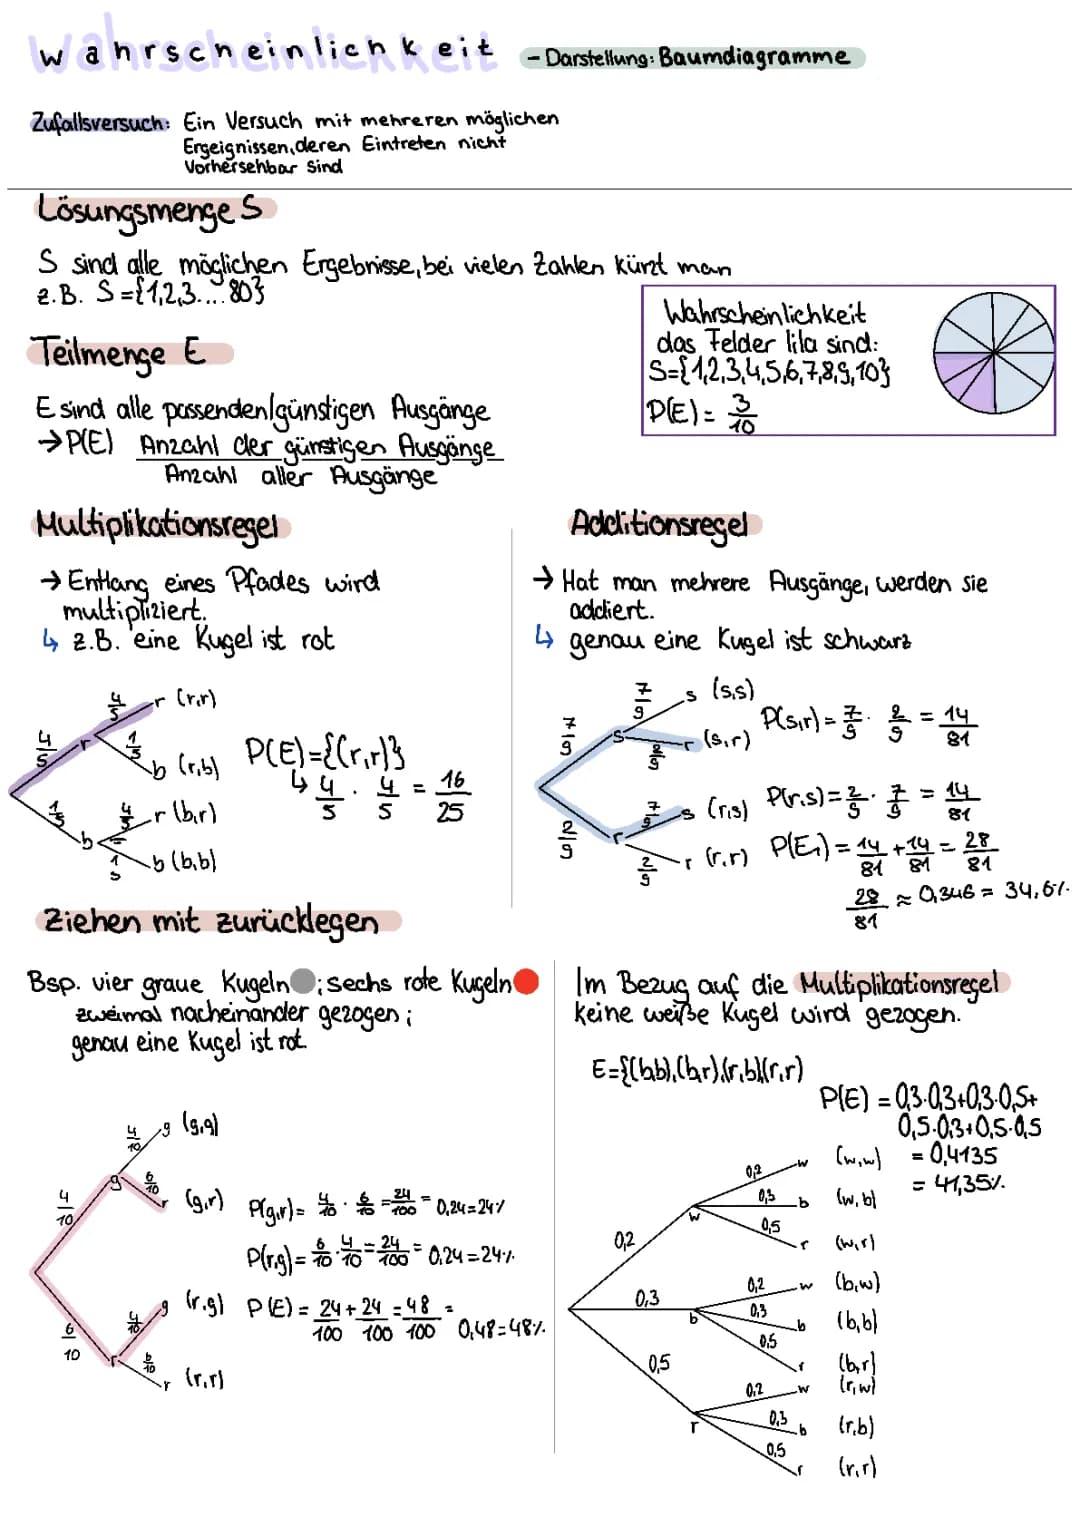 Wahrscheinlichkeit - Darstellung: Baumdiagramme
Zufallsversuch: Ein Versuch mit mehreren möglichen
Ergeignissen, deren Eintreten nicht
Vorhersehbar Sind
Lösungsmenge S
S sind alle möglichen Ergebnisse, bei vielen Zahlen kürzt man
z.B. S={1,2,3....80}
Wahrscheinlichkeit
das Felder lila sind:
S={1,2,3,4,5,6,7,8,9,10}
P(E) = 3/10
Teilmenge E
E sind alle passenden/günstigen Ausgänge
→ P(E) Anzahl der günstigen Ausgänge
Anzahl aller Ausgänge
Multiplikationsregel
→ Entlang eines Pfades wird
multipliziert.
↳ z.B. eine Kugel ist rot
4/5 r (r,r)
4/5 r
1/5 b (r,b)
P(E)={(r,r)}
↳ 4/5 · 4/5 = 16/25
1/5 b
4/5 r (b,r)
1/5 b (b,b)
Additionsregel
→ Hat man mehrere Ausgänge, werden sie
addiert.
↳ genau eine Kugel ist schwarz
7/9 s (s,s)
7/9 s
2/9 r (s,r)
P(s,r) = 7/9 · 2/9 = 14/81
7/9 s (r,s)
P(r,s) = 2/9 · 7/9 = 14/81
2/9 r
2/9 r (r,r)
P(E1) = 14/81 + 14/81 = 28/81
28/81 ≈ 0,346 = 34,6%
Ziehen mit zurücklegen
Bsp. vier graue Kugeln ; sechs rote Kugeln
zweimal nacheinander gezogen ;
genau eine Kugel ist rot.
4/10 g (g,g)
4/10 g
6/10 r (g,r)
P(g,r) = 4/10 · 6/10 = 24/100 = 0,24=24%
P(r,g) = 6/10 · 4/10 = 24/100 = 0,24=24%
4/10 g (r,g)
P(E) = 24/100 + 24/100 = 48/100 = 0,48=48%
6/10 r
6/10 r (r,r)
Im Bezug auf die Multiplikationsregel
keine weiße Kugel wird gezogen.
E={(b,b),(b,r),(r,b)(r,r)
P(E) = 0,3·0,3+0,3·0,5+
0,5·0,3+0,5·0,5
= 0,4135
= 41,35%
0,2 w
0,2 w (w,w)
0,3 b (w,b)
0,5 r (w,r)
0,3 b
0,2 w (b,w)
0,3 b (b,b)
0,5 r (b,r)
0,5 r
0,2 w (r,w)
0,3 b (r,b)
0,5 r (r,r)